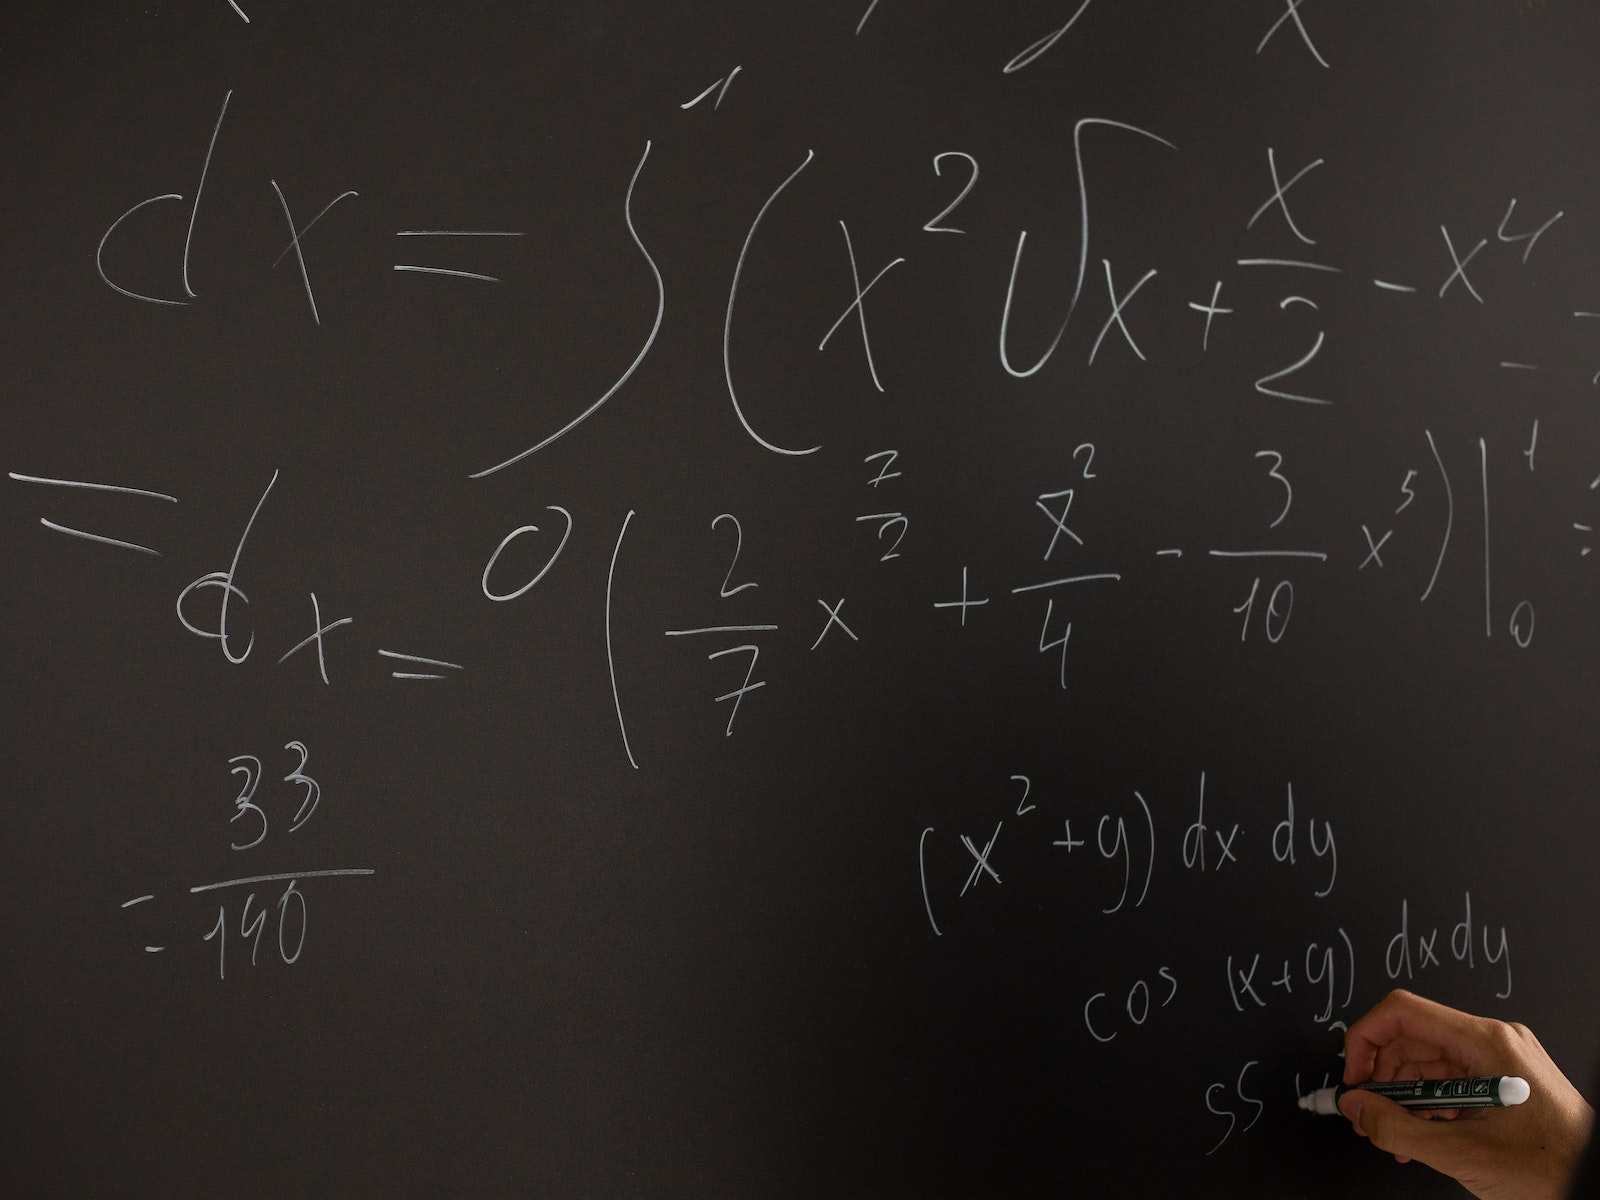 dx = ∫ 1 0 (x² √x + x/2 - x⁴
= dx = (2/7 x^7/2 + x²/4 - 3/10 x⁵)|1 0
= 33/140
(x² + y) dx dy
cos (x+y) dx dy
SS